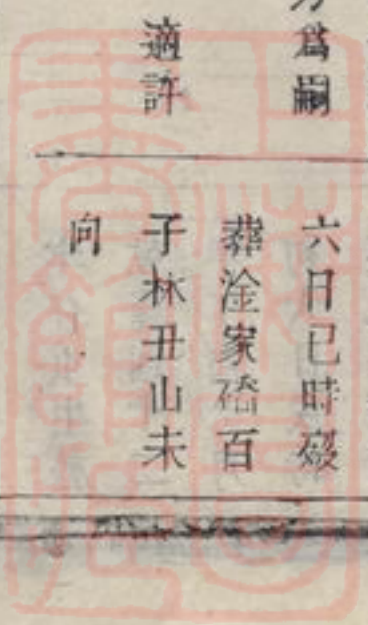 為嗣
適許
六日巳時歿
葬淦家磘百
子林丑山未
向